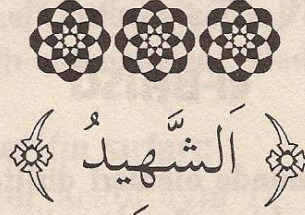 اَلشَّهِيدُ